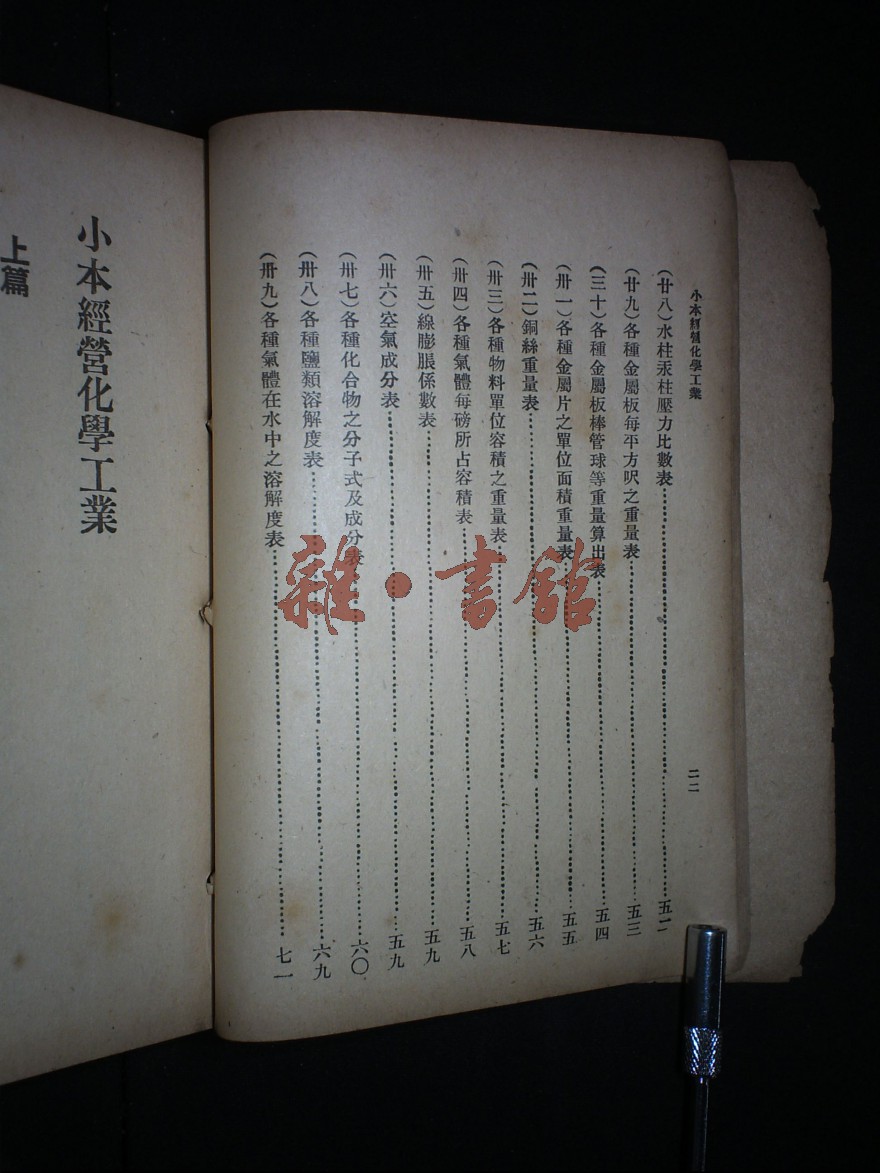 小本經營化學工業
二二
(廿八)水柱汞柱壓力比數表
(廿九)各種金屬板每平方呎之重量表………五三
(三十)各種金屬板棒管球等重量算出表………五四
(卅一)各種金屬片之單位面積重量表………五五
(卅二)銅絲重量表………五六
(卅三)各種物料單位容積之重量表………五七
(卅四)各種氣體每磅所占容積表………五八
(卅五)線膨脹係數表………五九
(卅六)空氣成分表………五九
(卅七)各種化合物之分子式及成分表………六〇
(卅八)各種鹽類溶解度表………六九
(卅九)各種氣體在水中之溶解度表………七一
小本經營化學工業
上篇
雜·書館